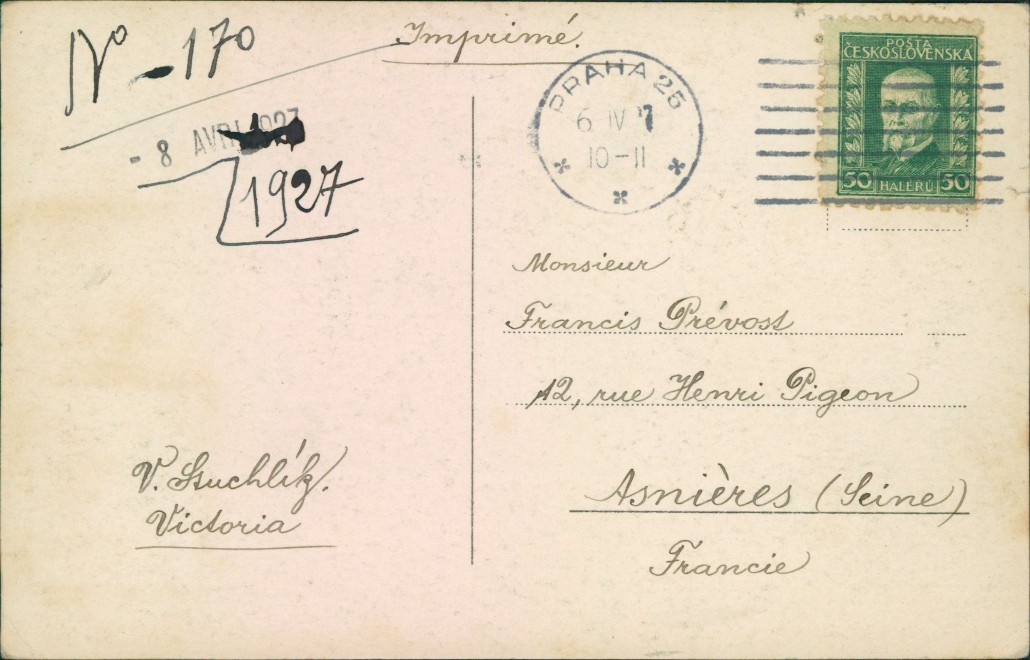 No - 170
Imprimé.
- 8 AVRI 1927
1927
PRAHA 25
6 IV 27
10-11
POŠTA
ČESKOSLOVENSKÁ
50 HALÉŘŮ 50
Monsieur
Francis Prévost
12, rue Henri Pigeon
Asnières (Seine)
Francie
V. Stuchlík.
Victoria